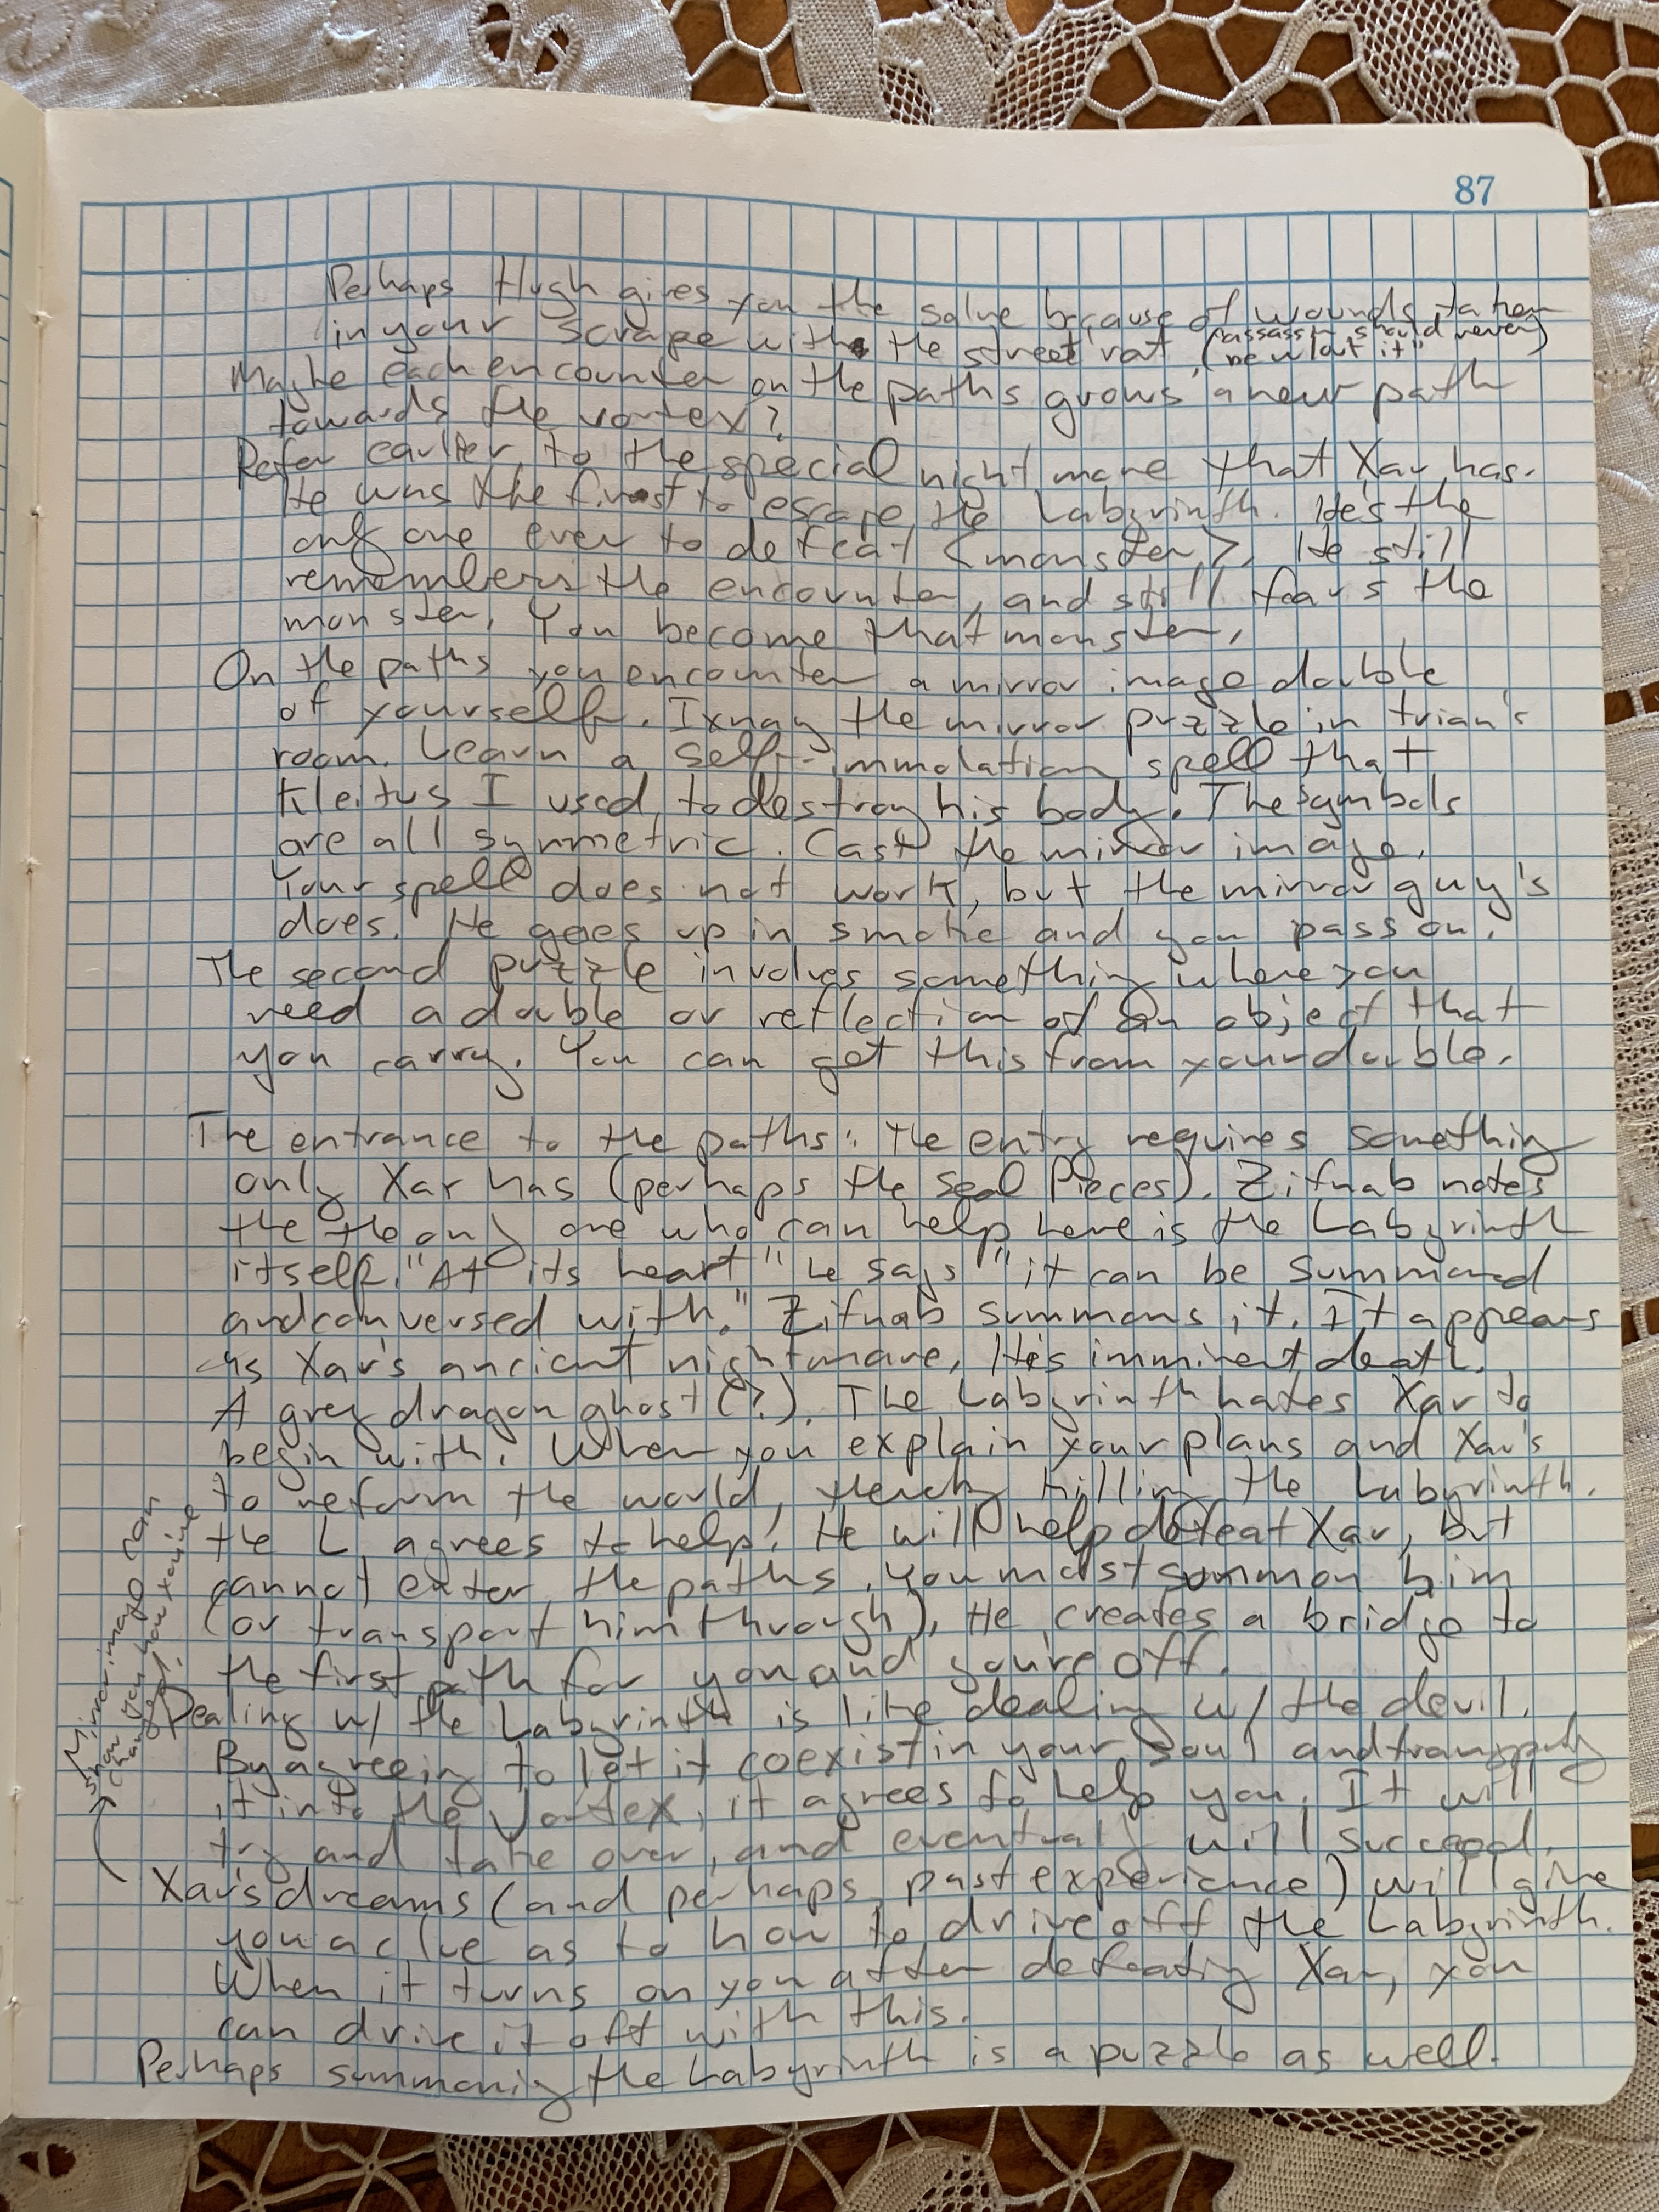 87
Perhaps Hugh gives you the salve because of wounds taken
in your scrape with the street rat. ("assassin should never
be w/out it")
Maybe each encounter on the paths grows a new path
towards the vortex?
Refer earlier to the special nightmare that Xar has.
He was the first to escape the Labyrinth. He's the
only one ever to defeat <monster>. He still
remembers the encounter, and still fears the
monster. You become that monster.
On the paths you encounter a mirror image double
of yourself. Ixnay the mirror puzzle in trian's
room. Learn a self-immolation spell that
Kleitus I used to destroy his body. The symbols
are all symmetric. Cast the mirror image.
Your spell does not work, but the mirror guy's
does. He goes up in smoke and you pass on.
The second puzzle involves something where you
need a double or reflection of an object that
you carry. You can get this from your double.
The entrance to the paths: The entry requires something
only Xar has (perhaps the seal pieces). Zifnab notes
the the only one who can help here is the Labyrinth
itself. "At its heart" he says "it can be summoned
and conversed with." Zifnab summons it. It appears
as Xar's ancient nightmare. His imminent death.
A grey dragon ghost (?). The Labyrinth hates Xar to
begin with. When you explain your plans and Xar's
to reform the world, thereby killing the Labyrinth.
the L agrees to help. He will help defeat Xar, but
cannot enter the paths. You must summon him
(or transport him through). He creates a bridge to
the first path for you and you're off.
Dealing w/ the Labyrinth is like dealing w/ the devil.
By agreeing to let it coexist in your soul and transport
it into the Vortex, it agrees to help you. It will
try and take over, and eventually will succeed.
Xar's dreams (and perhaps past experience) will give
you a clue as to how to drive off the Labyrinth.
When it turns on you after defeating Xar, you
can drive it off with this.
Perhaps summoning the Labyrinth is a puzzle as well.
Mirror image can
show you how you've
changed.